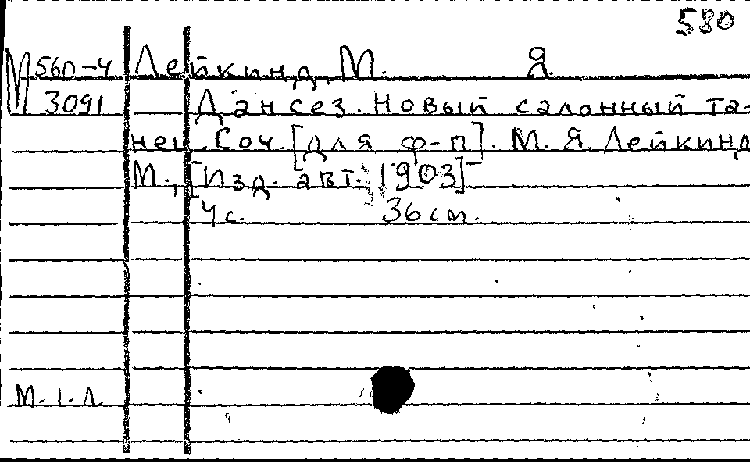 580
М 560-4 Лейкинд, М. Я
3091 Дансез. Новый салонный та-
нец. Соч. [для ф-п]. М. Я. Лейкинд
М., [Изд. авт. 1903]
4 с. 36 cm.
М. 1. Л.